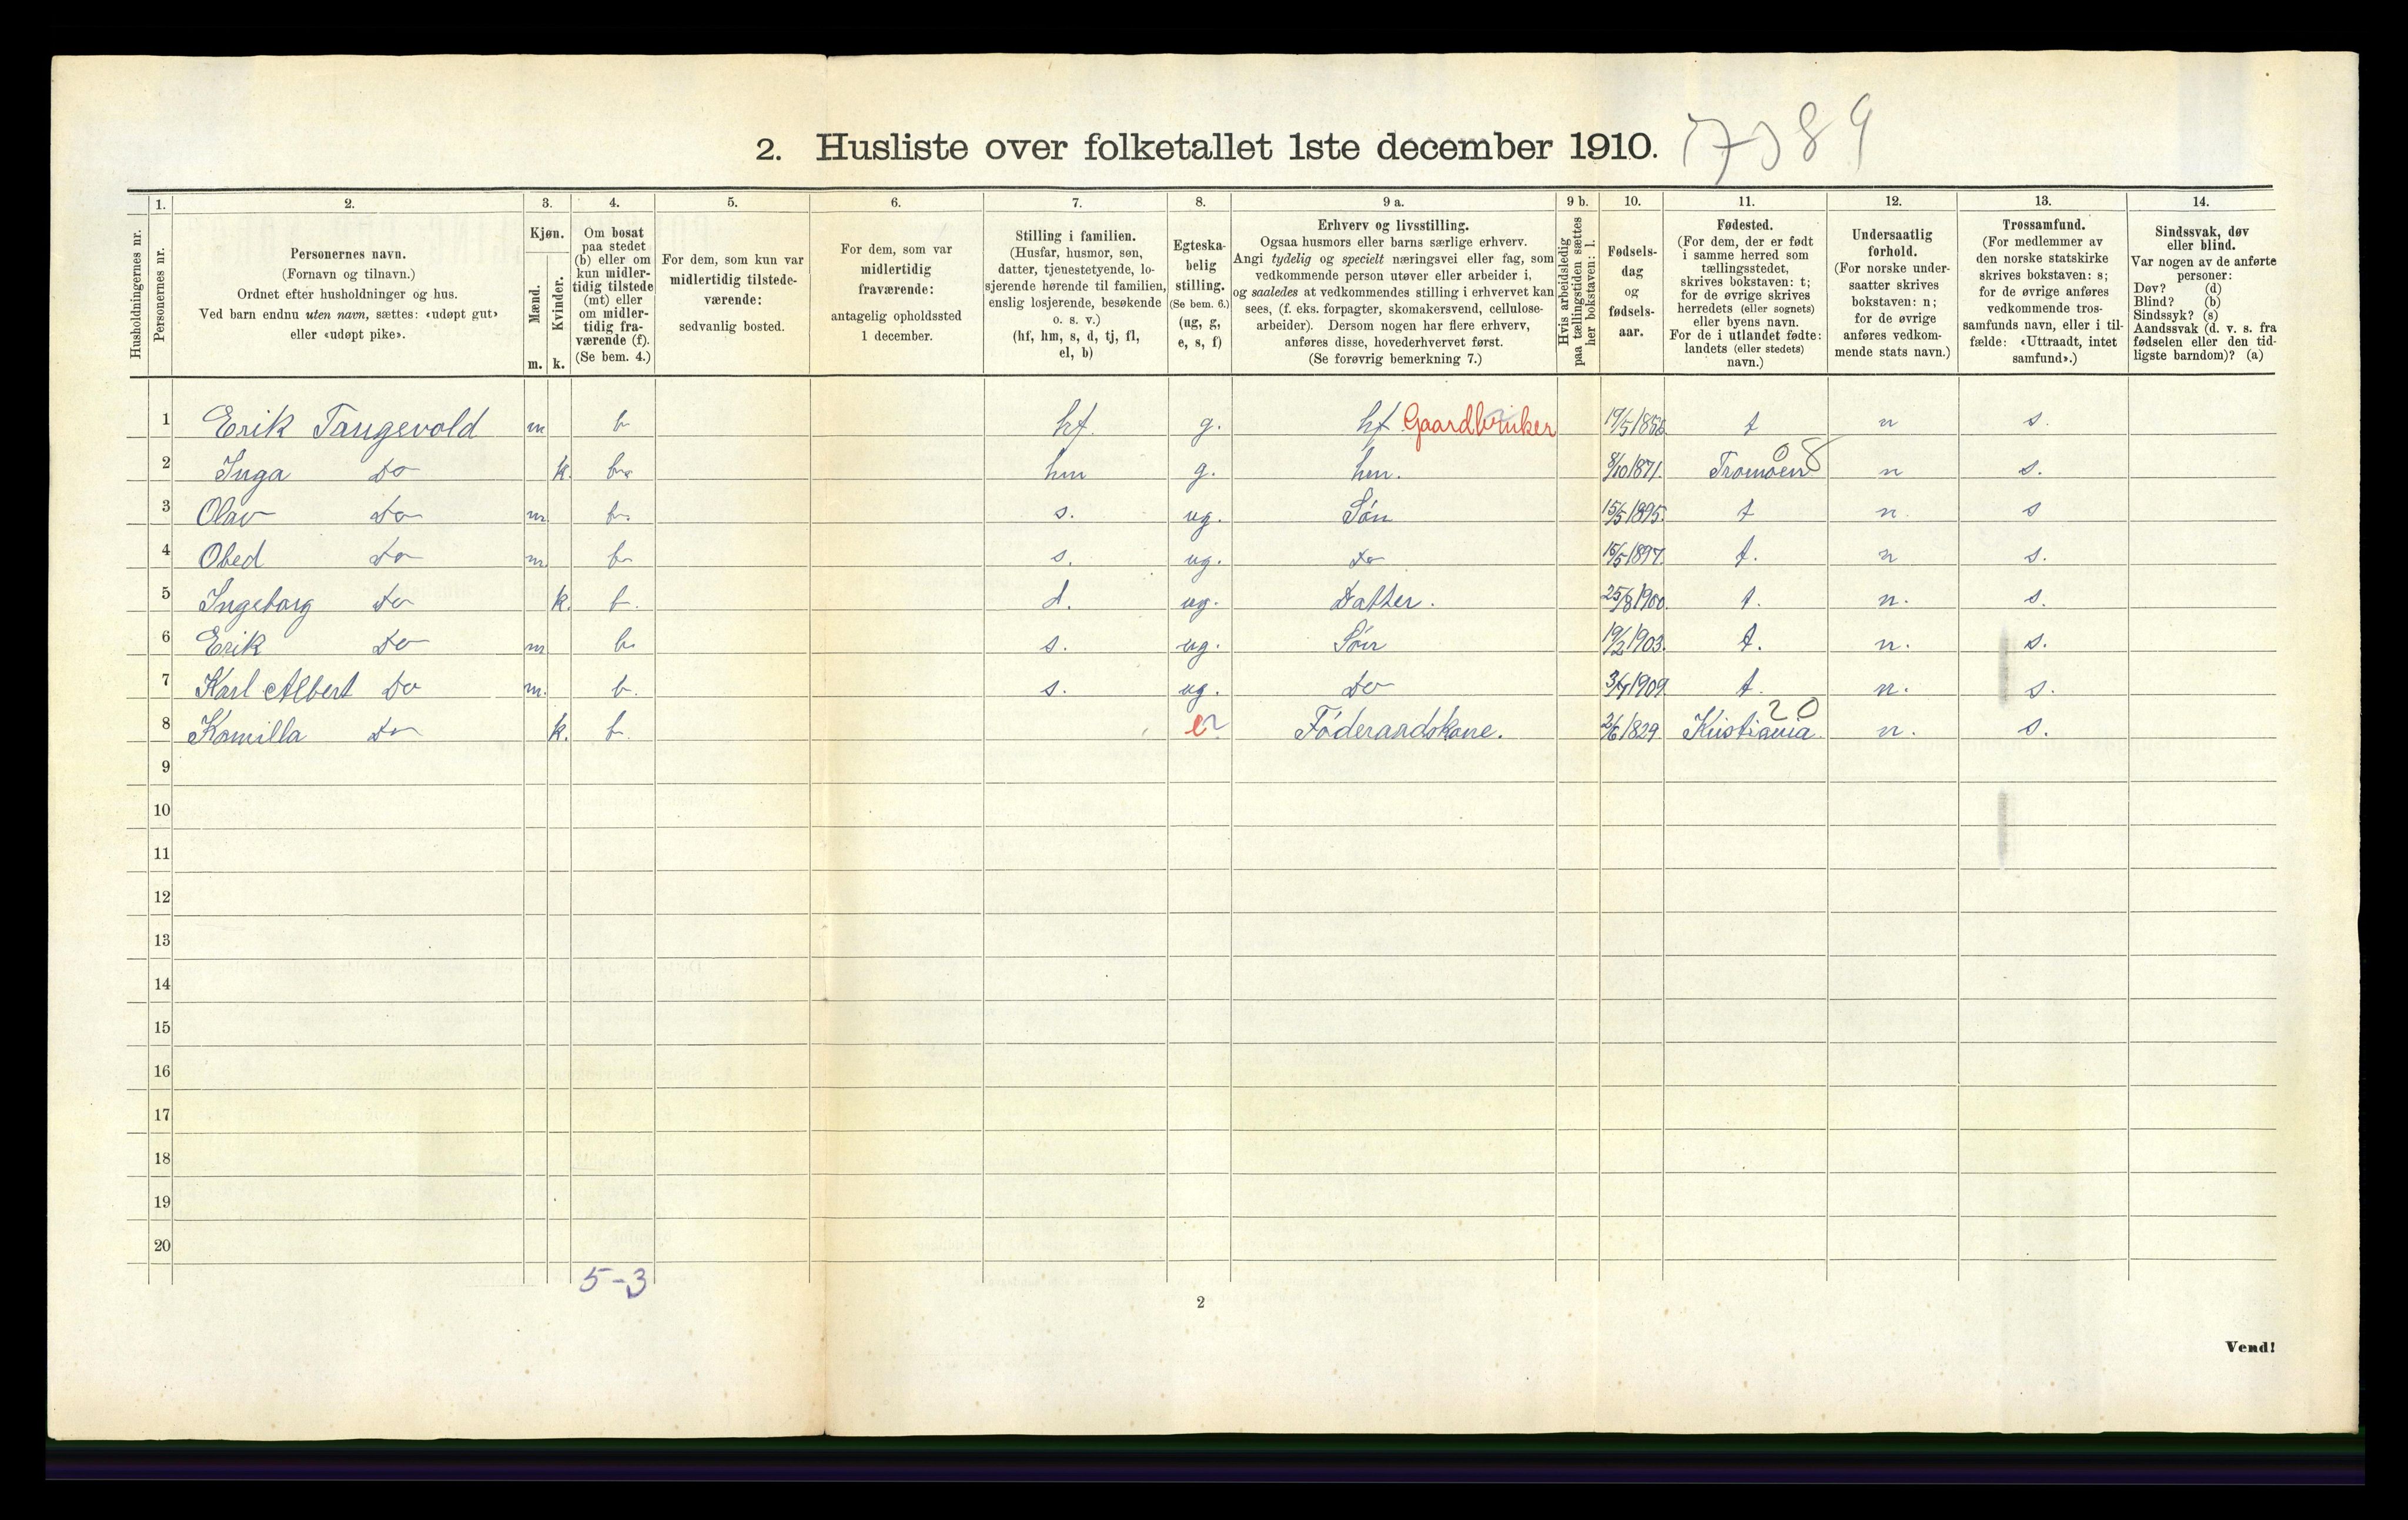 2. Husliste over folketallet 1ste december 1910.
1. 2. 3. 4. 5. 6. 7. 8. 9 a. 9 b. 10. 11. 12. 13. 14.
Husholdningernes nr.
Personernes nr.
Personernes navn.
(Fornavn og tilnavn.)
Ordnet efter husholdninger og hus.
Ved barn endnu uten navn, sættes: «udøpt gut»
eller «udøpt pike».
Kjøn.
Mænd.
m.
Kvinder.
k.
Om bosat
paa stedet
(b) eller om
kun midler-
tidig tilstede
(mt) eller
om midler-
tidig fra-
værende (f).
(Se bem. 4.)
For dem, som kun var
midlertidig tilstede-
værende:
sedvanlig bosted.
For dem, som var
midlertidig
fraværende:
antagelig opholdssted
1 december.
Stilling i familien.
(Husfar, husmor, søn,
datter, tjenestetyende, lo-
sjerende hørende til familien,
enslig losjerende, besøkende
o. s. v.)
(hf, hm, s, d, tj, fl,
el, b)
Egteska-
belig
stilling.
(Se bem. 6.)
(ug, g,
e, s, f)
Erhverv og livsstilling.
Ogsaa husmors eller barns særlige erhverv.
Angi tydelig og specielt næringsvei eller fag, som
vedkommende person utøver eller arbeider i,
og saaledes at vedkommendes stilling i erhvervet kan
sees, (f. eks. forpagter, skomakersvend, cellulose-
arbeider). Dersom nogen har flere erhverv,
anføres disse, hovederhvervet først.
(Se forøvrig bemerkning 7.)
Hvis arbeidsledig
paa tællingstiden sættes
her bokstaven: l.
Fødsels-
dag
og
fødsels-
aar.
Fødested.
(For dem, der er født
i samme herred som
tællingsstedet,
skrives bokstaven: t;
for de øvrige skrives
herredets (eller sognets)
eller byens navn.
For de i utlandet fødte:
landets (eller stedets)
navn.)
Undersaatlig
forhold.
(For norske under-
saatter skrives
bokstaven: n;
for de øvrige
anføres vedkom-
mende stats navn.)
Trossamfund.
(For medlemmer av
den norske statskirke
skrives bokstaven: s;
for de øvrige anføres
vedkommende tros-
samfunds navn, eller i til-
fælde: «Uttraadt, intet
samfund».)
Sindssvak, døv
eller blind.
Var nogen av de anførte
personer:
Døv? (d)
Blind? (b)
Sindssyk? (s)
Aandssvak (d. v. s. fra
fødselen eller den tid-
ligste barndom)? (a)
1 Erik Tangevold m b hf. g. hf Gaardbruker t n s.
8
2 Inga Do k. b. hm g. hm. 8/10 1871. Tromøen n s.
3 Olav Do m b. s. ug. Søn 15/5 1895. t n s
4 Obed Do m b. s. ug. Do 15/5 1897. t. n s.
5 Ingeborg Do k. b. d. ug. Datter. 25/8 1900. t. n. s.
6 Erik Do m b. s. ug. Søn 19/2 1903. t. n. s.
7 Karl Albert Do m. b. s. ug. Do 1909. t. n. s.
20
8 Kamilla Do k. b. e Føderaadskone. 2/6 1829. Kristiania. n. s.
9
10
11
12
13
14
15
16
17
18
19
20
5-3
2
Vend!